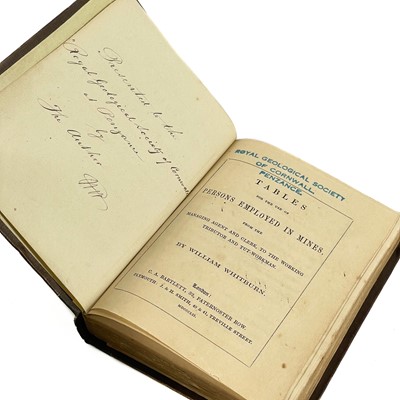 Presented to the
Royal Geological Society of Cornwall
at Penzance
by
The Author
ROYAL GEOLOGICAL SOCIETY
OF CORNWALL,
PENZANCE.
TABLES
FOR THE USE OF
PERSONS EMPLOYED IN MINES,
FROM THE
MANAGING AGENT AND CLERK, TO THE WORKING
TRIBUTOR AND TUT-WORKMAN.
BY WILLIAM WHITBURN.
London:
C. A. BARTLETT, 32, PATERNOSTER ROW.
PLYMOUTH: J. & H. SMITH, & 41, TREVILLE STREET.